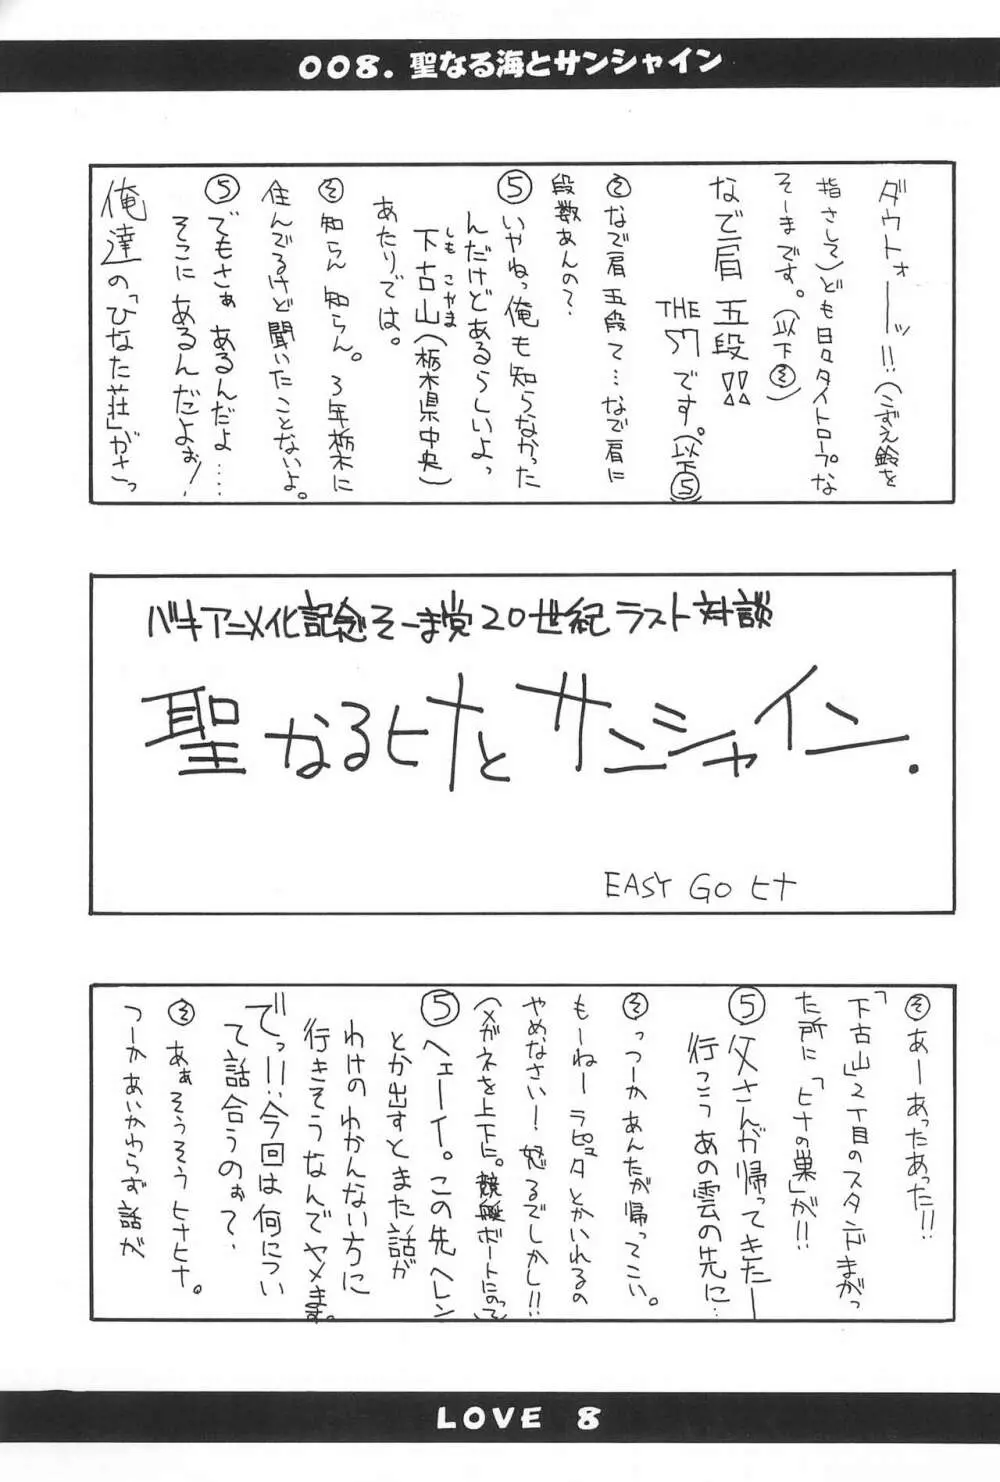 008.聖なる海とサンシャイン
ダウトォーッ!!(こずえ鈴を
指さして)ども日々タイトロープな
そーまです。(以下そ)
なで肩 五段!!
THE 57です。(以下5)
そ なで肩 五段て…なで肩に
段数あんの?
5 いやねっ俺も知らなかった
んだけどあるらしいよっ
下古山(栃木県中央)
しも こやま
あたりでは。
そ 知らん 知らん。3年栃木に
住んでるけど聞いたことないよ。
5 でもさぁ あるんだよ……
そこに あるんだよぉ!
俺達の「ひなた荘」がさっ
バキアニメ化記念そーま党20世紀ラスト対談
聖なるヒナとサンシャイン.
EASY GO ヒナ
そ あーあったあった!!
「下古山」2丁目のスタンドまがっ
た所に「ヒナの巣」が!!
5 父さんが帰ってきたー
行こう あの雲の先に…
そ っつーかあんたが帰ってこい。
もーねーラピュタとかいれるの
やめなさい!怒るでしかし!!
(メガネを上下に。競艇ボートにのって)
5 ヘェーイ。この先ヘレン
とか出すとまた話が
わけのわかんない方に
行きそうなんでヤメます。
でっ!!今回は何につい
て話合うのぉ?
そ あぁそうそうヒナヒナ。
つーかあいかわらず話が
LOVE 8